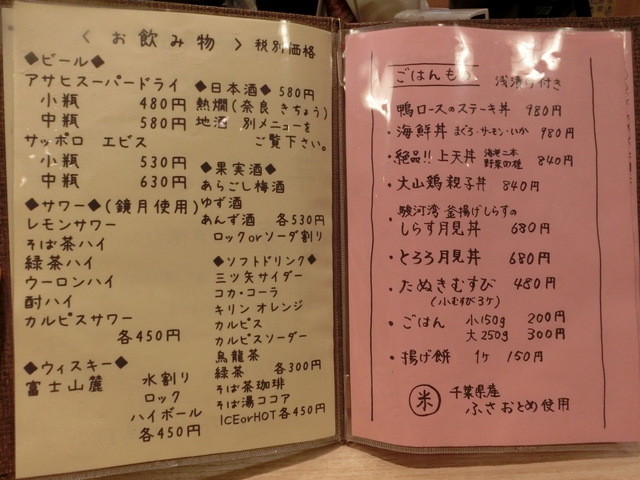 〈 お飲み物 〉 税別価格
◆ビール◆
アサヒスーパードライ
小瓶 480円
中瓶 580円
サッポロ エビス
小瓶 530円
中瓶 630円
◆サワー◆(鏡月使用)
レモンサワー
そば茶ハイ
緑茶ハイ
ウーロンハイ
酎ハイ
カルピスサワー
各450円
◆ウィスキー◆
富士山麓 水割り
ロック
ハイボール
各450円
◆日本酒◆ 580円
熱燗(奈良 きちょう)
地酒 別メニューを
ご覧下さい。
◆果実酒◆
あらごし梅酒
ゆず酒
あんず酒 各530円
ロックorソーダ割り
◆ソフトドリンク◆
三ツ矢サイダー
コカ・コーラ
キリン オレンジ
カルピス
カルピスソーダー
烏龍茶
緑茶 各300円
そば茶珈琲
そば湯ココア
ICEorHOT各450円
ごはんもの 浅漬け付き
・鴨ロースのステーキ丼 980円
・海鮮丼 まぐろ・サーモン・いか 980円
・絶品!! 上天丼 海老二本 野菜四種 840円
・大山鶏親子丼 840円
・駿河湾 釜揚げしらすの
しらす月見丼 680円
・とろろ月見丼 680円
・たぬきむすび 480円
(小むすび3ケ)
・ごはん 小150g 200円
大250g 300円
・揚げ餅 1ケ 150円
米 千葉県産
ふさおとめ使用